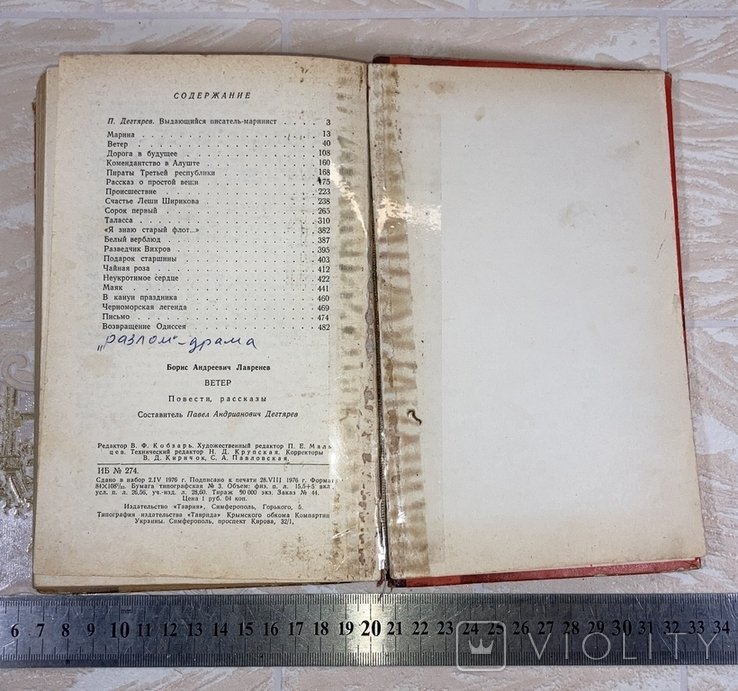 СОДЕРЖАНИЕ
П. Дегтярев. Выдающийся писатель-маринист . . . . 3
Марина . . . . 13
Ветер . . . . 40
Дорога в будущее . . . . 108
Комендантство в Алуште . . . . 160
Пираты Третьей республики . . . . 168
Рассказ о простой вещи . . . . 175
Происшествие . . . . 223
Счастье Леши Ширикова . . . . 238
Сорок первый . . . . 265
Таласса . . . . 310
«Я знаю старый флот...» . . . . 382
Белый верблюд . . . . 387
Разведчик Вихров . . . . 395
Подарок старшины . . . . 403
Чайная роза . . . . 412
Неукротимое сердце . . . . 422
Маяк . . . . 441
В канун праздника . . . . 460
Черноморская легенда . . . . 469
Письмо . . . . 474
Возвращение Одиссея . . . . 482
„разлом"-драма
Борис Андреевич Лавренев
ВЕТЕР
Повести, рассказы
Составитель Павел Андрианович Дегтярев
Редактор В. Ф. Кобзарь. Художественный редактор П. Е. Маль-
цев. Технический редактор Н. Д. Крупская. Корректоры
В. Д. Киричок, С. А. Павловская.
ИБ № 274.
Сдано в набор 2.IV 1976 г. Подписано к печати 28.VIII 1976 г. Формат
84X108¹/₃₂. Бумага типографская № 3. Объем: физ. п. л. 15,5+5 вкл.,
усл. п. л. 26,56, уч.-изд. л. 28,60. Тираж 90 000 экз. Заказ № 44.
Цена 1 руб. 04 коп.
Издательство «Таврия», Симферополь, Горького, 5.
Типография издательства «Таврида» Крымского обкома Компартии
Украины. Симферополь, проспект Кирова, 32/1,
6 7 8 9 10 11 12 13 14 15 16 17 18 19 20 21 22 23 24 25 26 27 28 29 30 31 32 33 34
VIOLITY